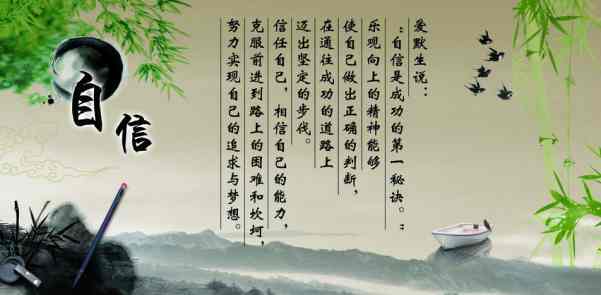 自信
爱默生说：
“自信是成功的第一秘诀。”
乐观向上的精神能够
使自己做出正确的判断，
在通往成功的道路上
迈出坚定的步伐。
信任自己，相信自己的能力，
克服前进到路上的困难和坎坷，
努力实现自己的追求与梦想。